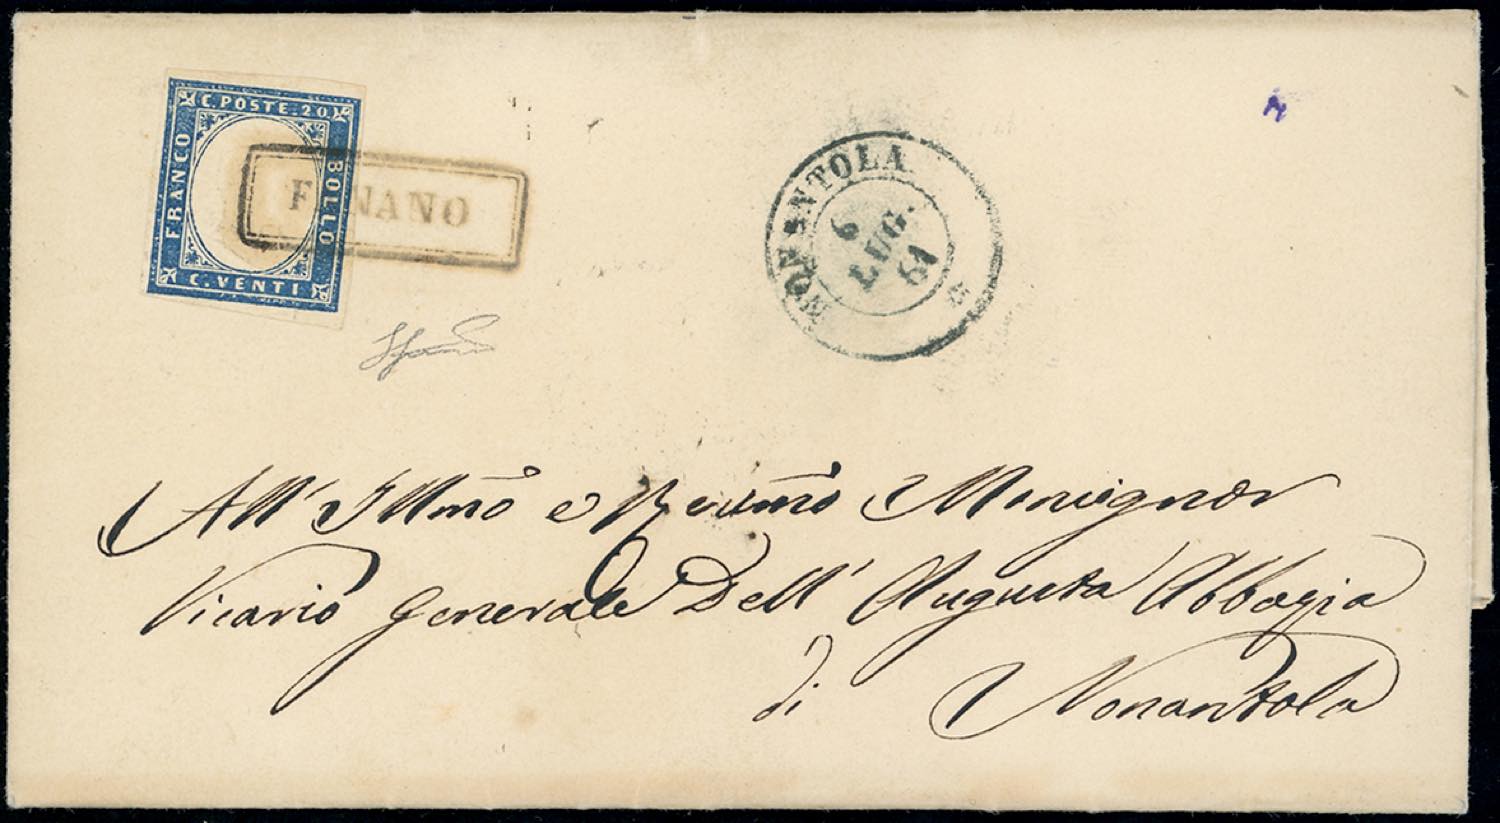 C. POSTE. 20
FRANCO
BOLLO
C. VENTI
F NANO
NONANTOLA
6
LUG.
61
All' Illmo e Revmo Monsignor
Vicario Generale Dell' Augusta Abbazia
di Nonantola